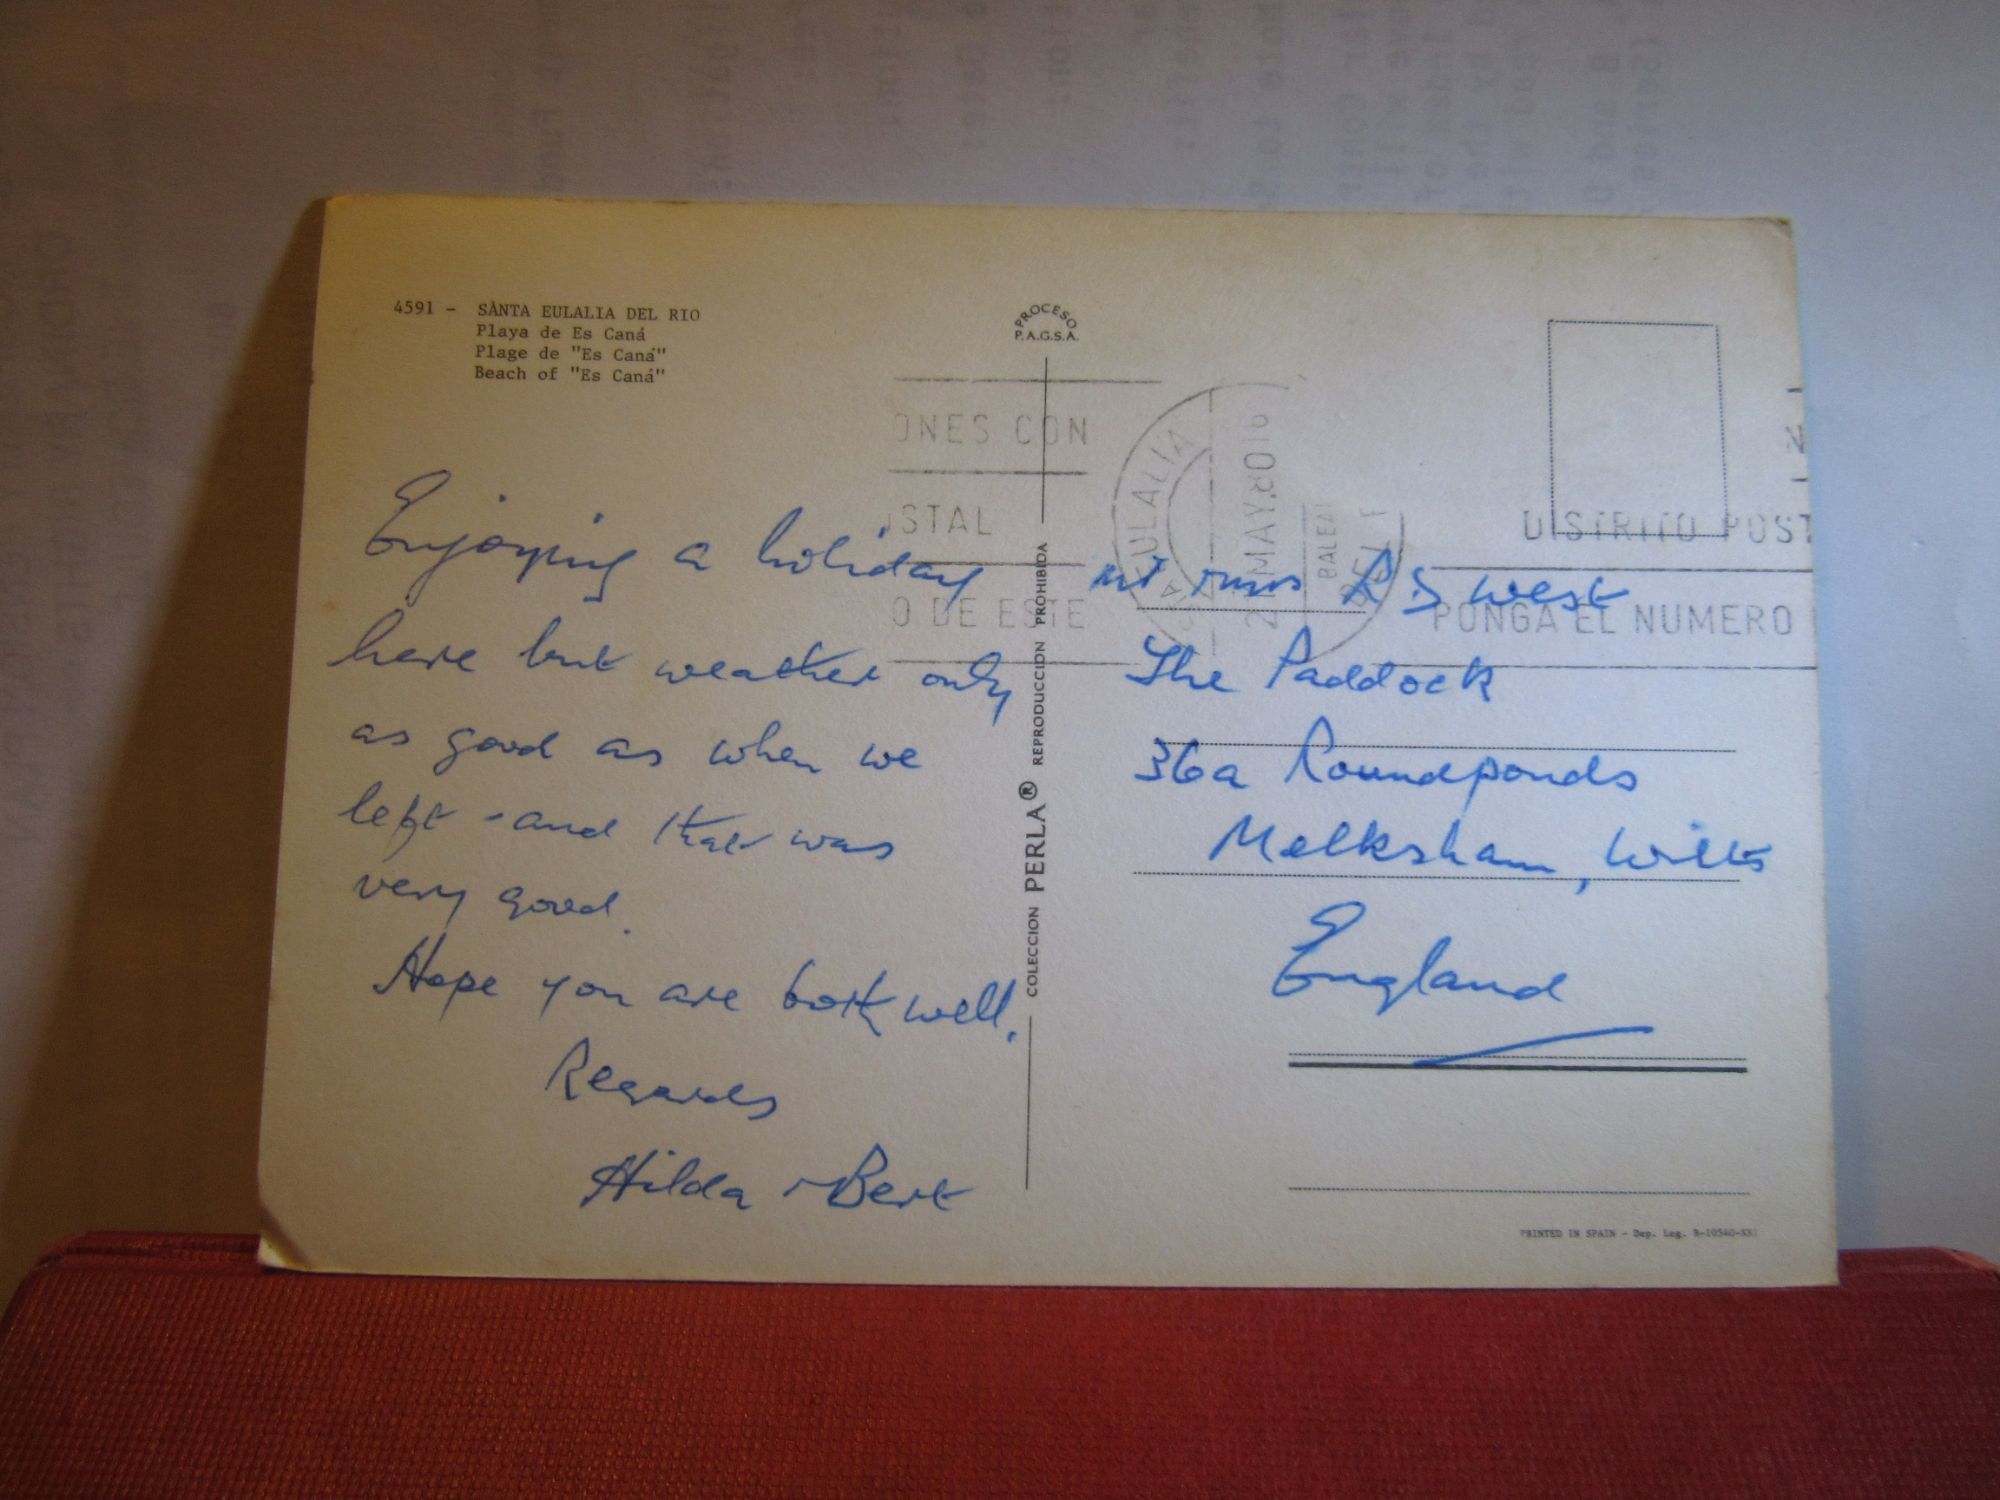 4591 - SANTA EULALIA DEL RIO
Playa de Es Caná
Plage de "Es Caná"
Beach of "Es Caná"
PROCESO
P.A.G.S.A.
ONES CON
STAL
O DE ESTE
EULALIA
MAY
DISTRITO POST
PONGA EL NUMERO
Enjoying a holiday
here but weather only
as good as when we
left - and that was
very good.
Hope you are both well.
Regards
Hilda + Bert
COLECCION PERLA® REPRODUCCION PROHIBIDA
R S West
The Paddock
36a Roundponds
Melksham, Wilts
England
PRINTED IN SPAIN - Dep. Leg. B-10540-XXI